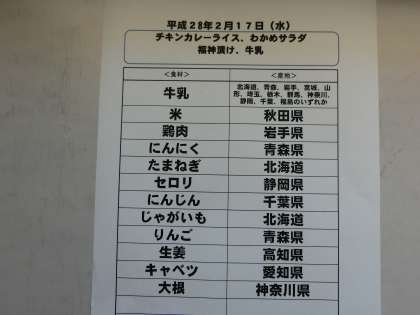 平成28年2月17日（水）
チキンカレーライス、わかめサラダ
福神漬け、牛乳
＜食材＞ ＜産地＞
牛乳 北海道、青森、岩手、宮城、山
形、埼玉、栃木、群馬、神奈川、
静岡、千葉、福島のいずれか
米 秋田県
鶏肉 岩手県
にんにく 青森県
たまねぎ 北海道
セロリ 静岡県
にんじん 千葉県
じゃがいも 北海道
りんご 青森県
生姜 高知県
キャベツ 愛知県
大根 神奈川県